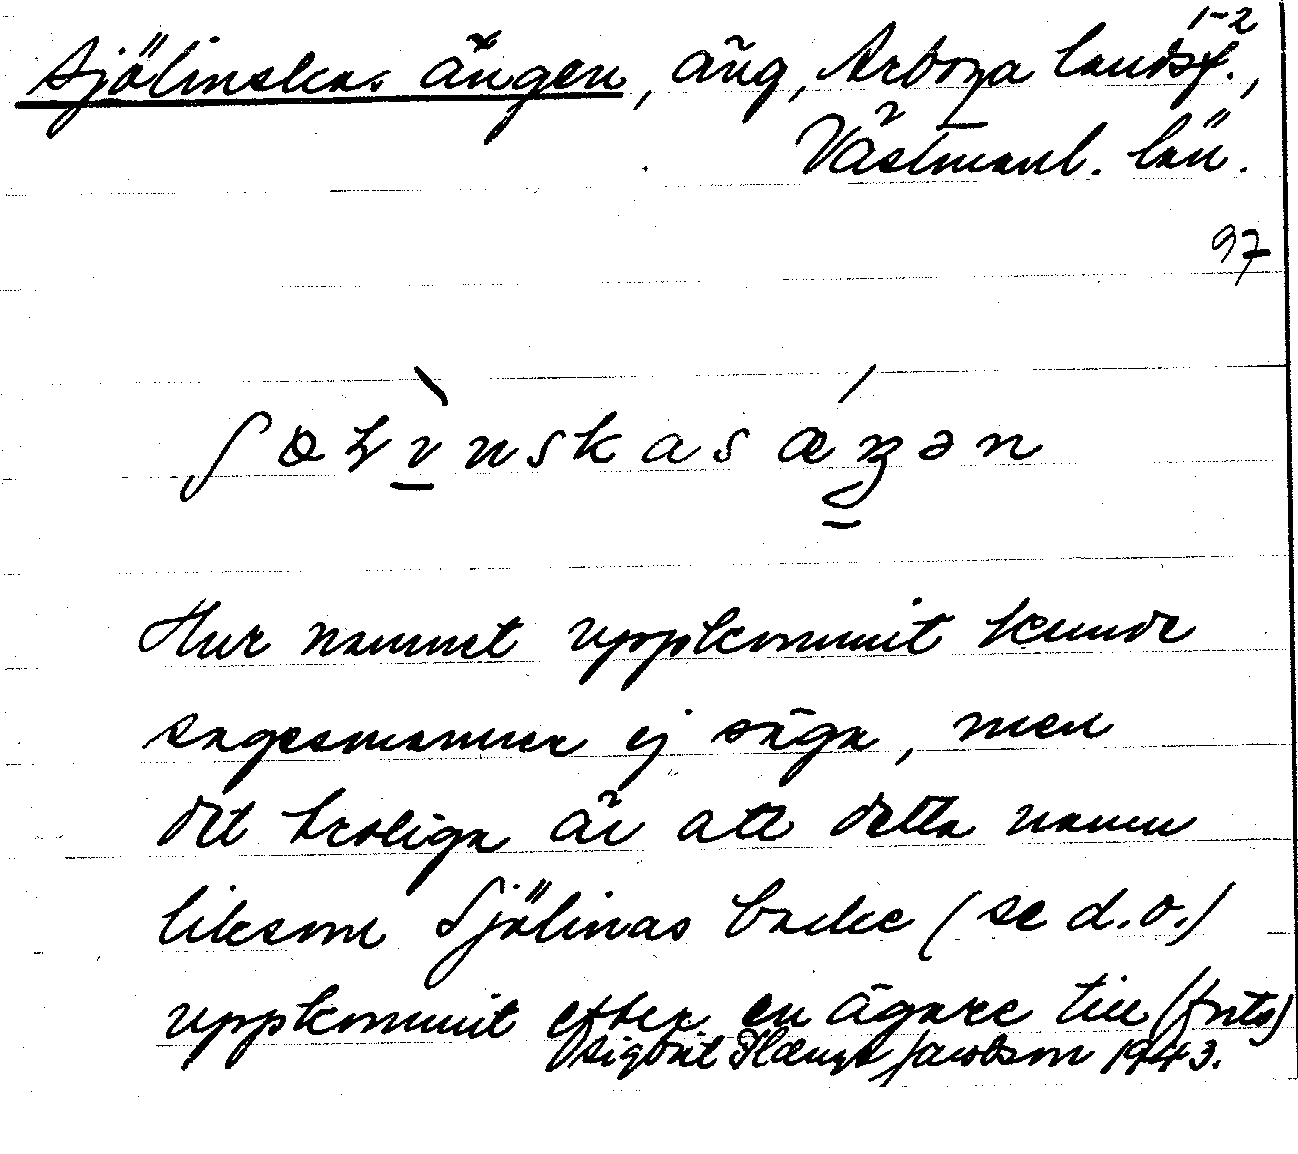 1-2
Sjölinska ängen, äng, Arboga landsf.,
Västmanl. län.
97
Hur namnet uppkommit kunde
sagesmannen ej säga, men
det troliga är att detta namn
liksom Sjölinas backe (se d.o.)
uppkommit efter en ägare till (forts)
Sigbrit Plænge Jacobson 1943.